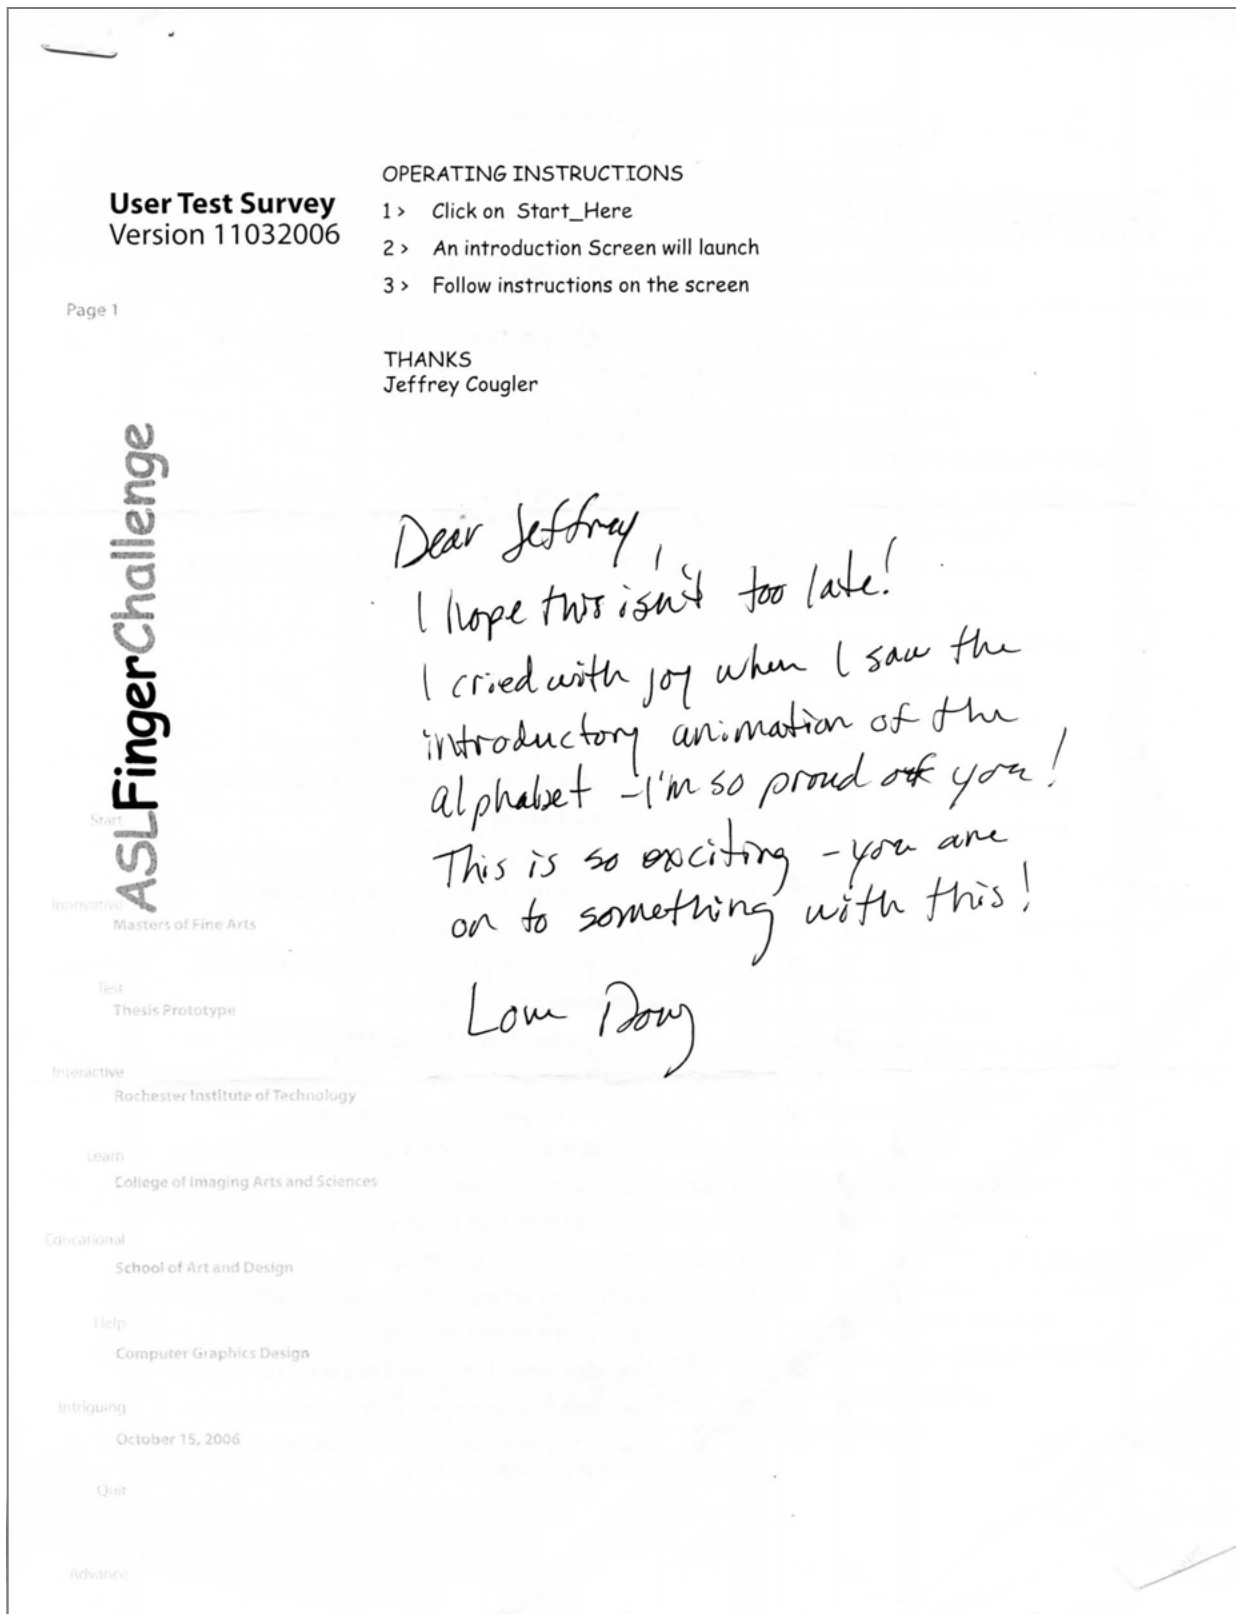 OPERATING INSTRUCTIONS
User Test Survey
Version 11032006
1 > Click on Start_Here
2 > An introduction Screen will launch
3 > Follow instructions on the screen
Page 1
THANKS
Jeffrey Cougler
ASLFingerChallenge
Dear Jeffrey,
I hope this isn't too late!
I cried with joy when I saw the
introductory animation of the
alphabet - I'm so proud of you!
This is so exciting - you are
on to something with this!
Love Doug
Start
Innovative
Masters of Fine Arts
Test
Thesis Prototype
Interactive
Rochester Institute of Technology
Learn
College of Imaging Arts and Sciences
Educational
School of Art and Design
Help
Computer Graphics Design
Intriguing
October 15, 2006
Quit
Advance